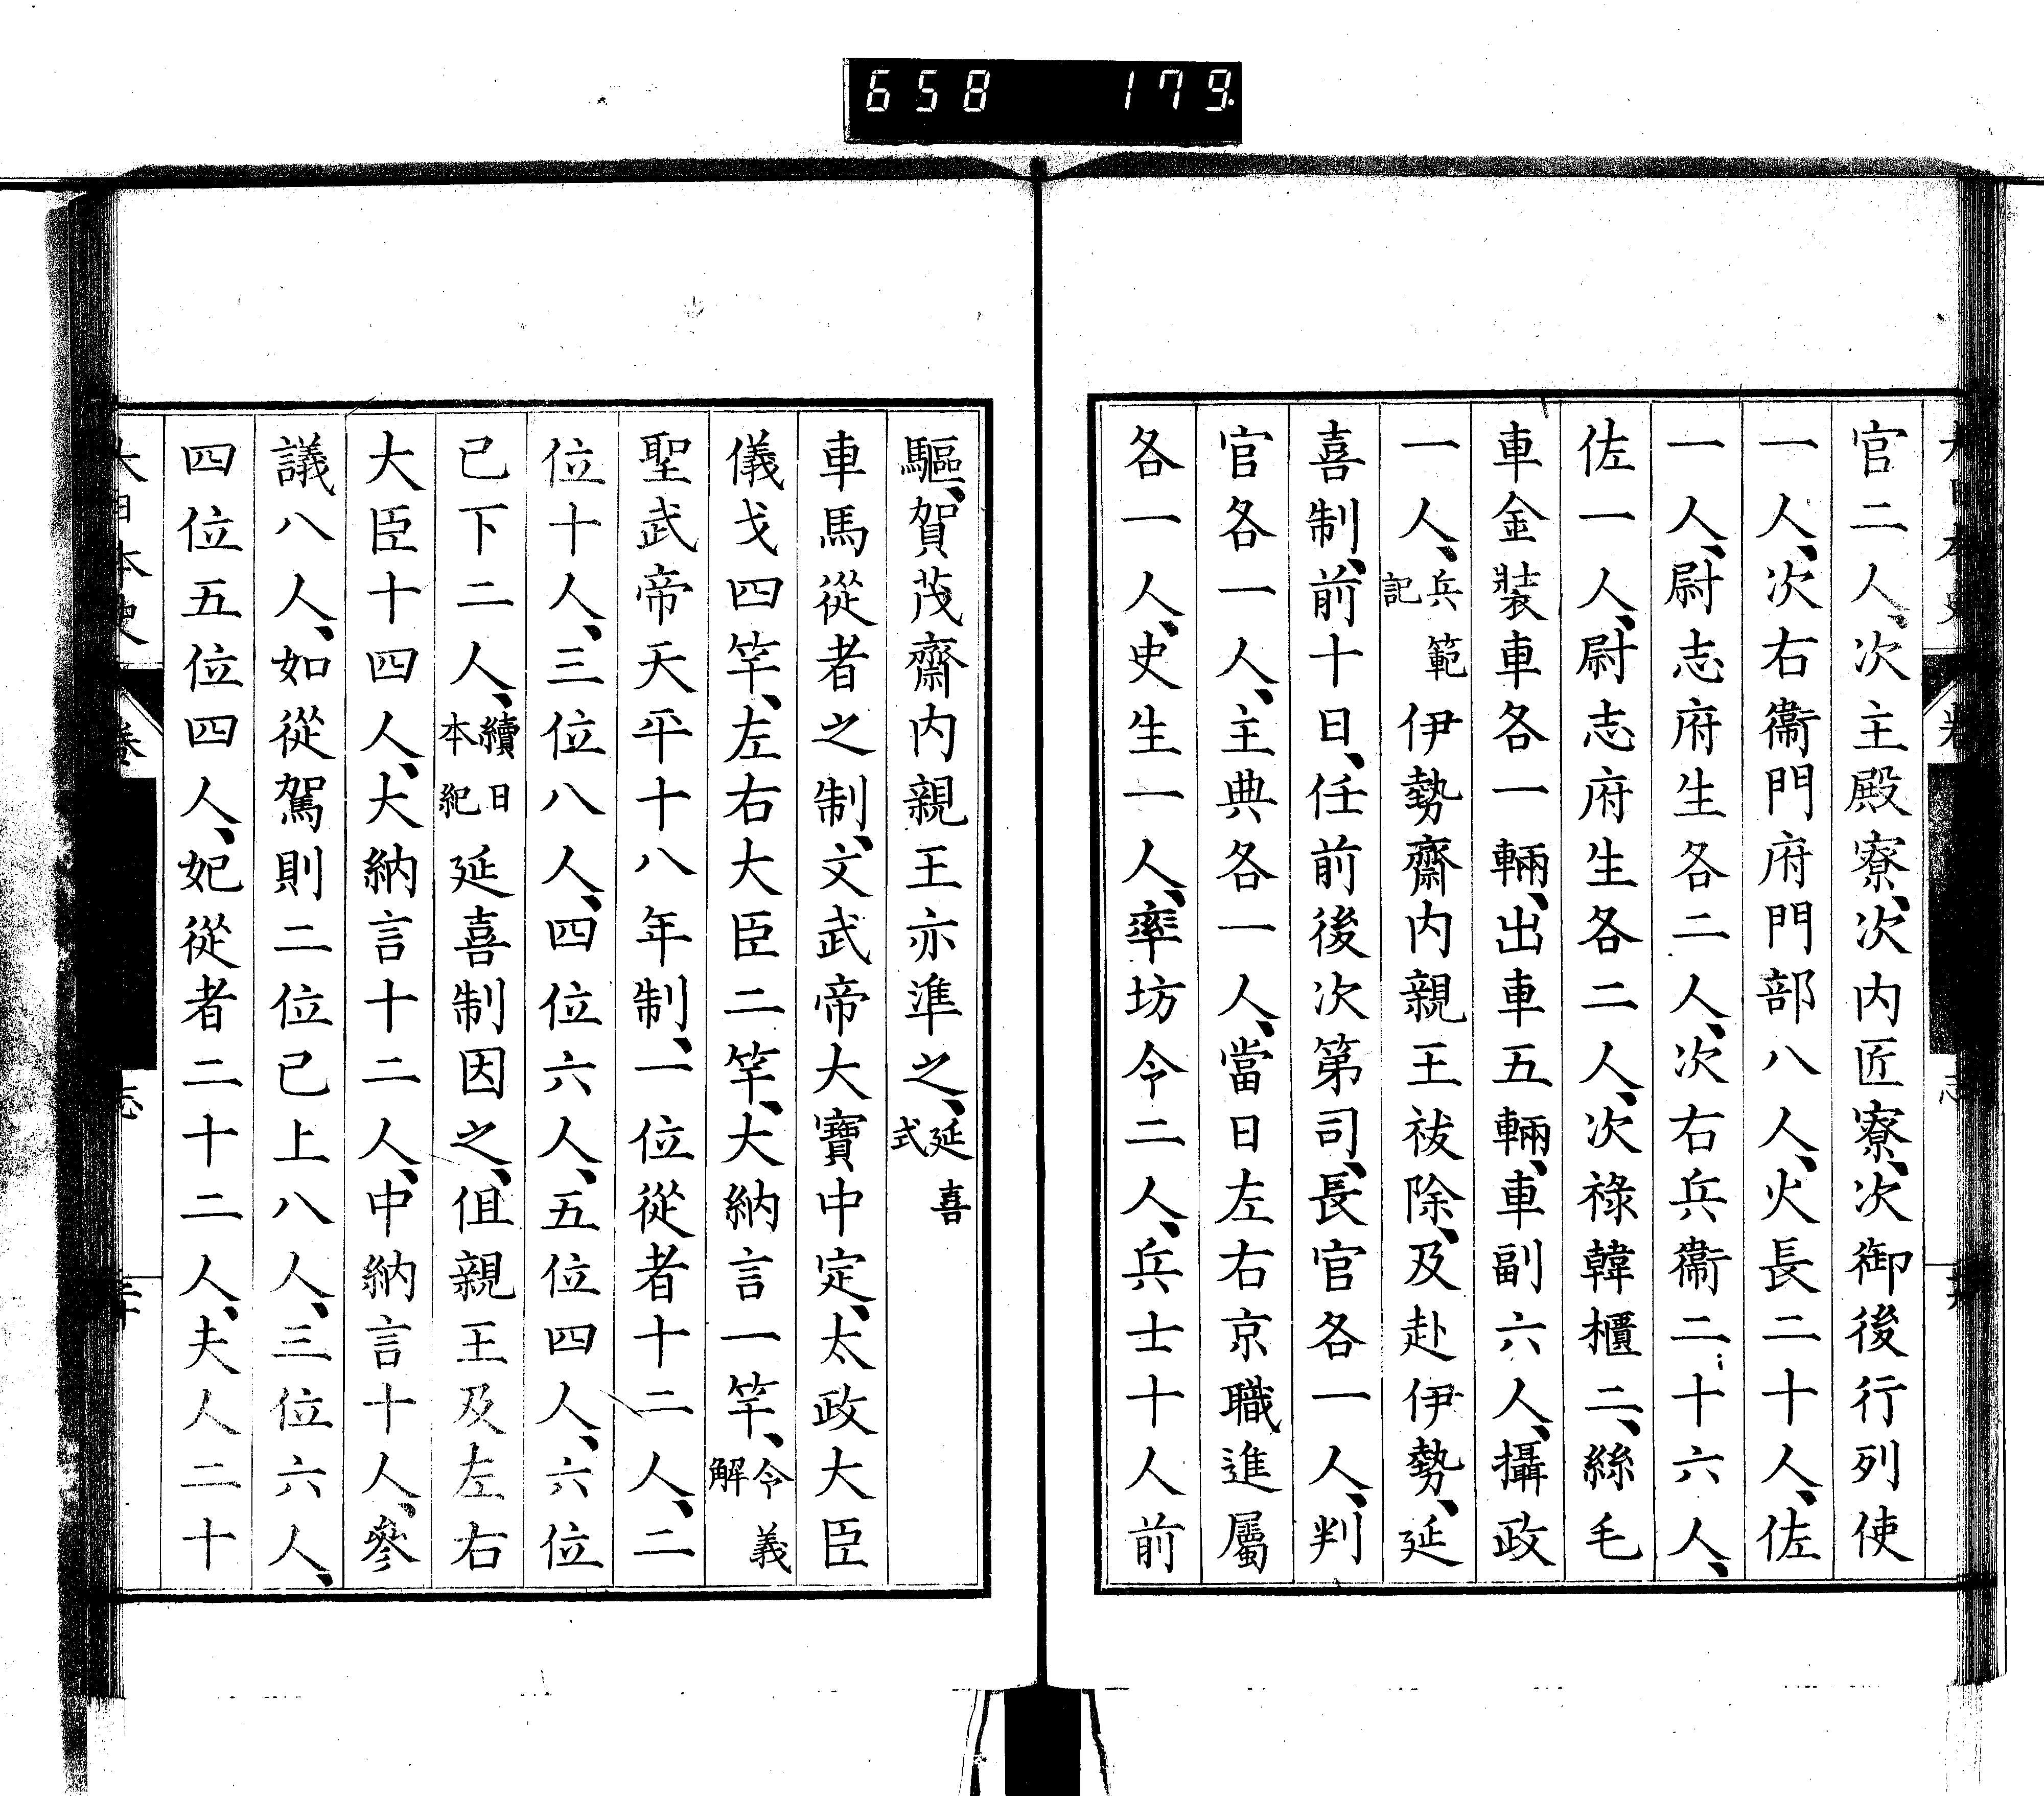 658 179
官二人、次主殿寮、次内匠寮、次御後行列使
一人、次右衞門府門部八人、火長二十人、佐
一人、尉志府生各二人、次右兵衞二十六人、
佐一人、尉志府生各二人、次祿韓櫃二、絲毛
車金裝車各一輛、出車五輛、車副六人、攝政
一人、兵範記伊勢齋内親王祓除、及赴伊勢、延
喜制、前十日、任前後次第司、長官各一人、判
官各一人、主典各一人、當日左右京職進屬
各一人、史生一人、率坊令二人、兵士十人前
驅、賀茂齋内親王亦準之、延喜式
車馬從者之制、文武帝大寶中定、太政大臣
儀戈四竿、左右大臣二竿、大納言一竿、令義解
聖武帝天平十八年制、一位從者十二人、二
位十人、三位八人、四位六人、五位四人、六位
已下二人、續日本紀延喜制因之、但親王及左右
大臣十四人、大納言十二人、中納言十人、參
議八人、如從駕則二位已上八人、三位六人、
四位五位四人、妃從者二十二人、夫人二十
大日本史 卷 志